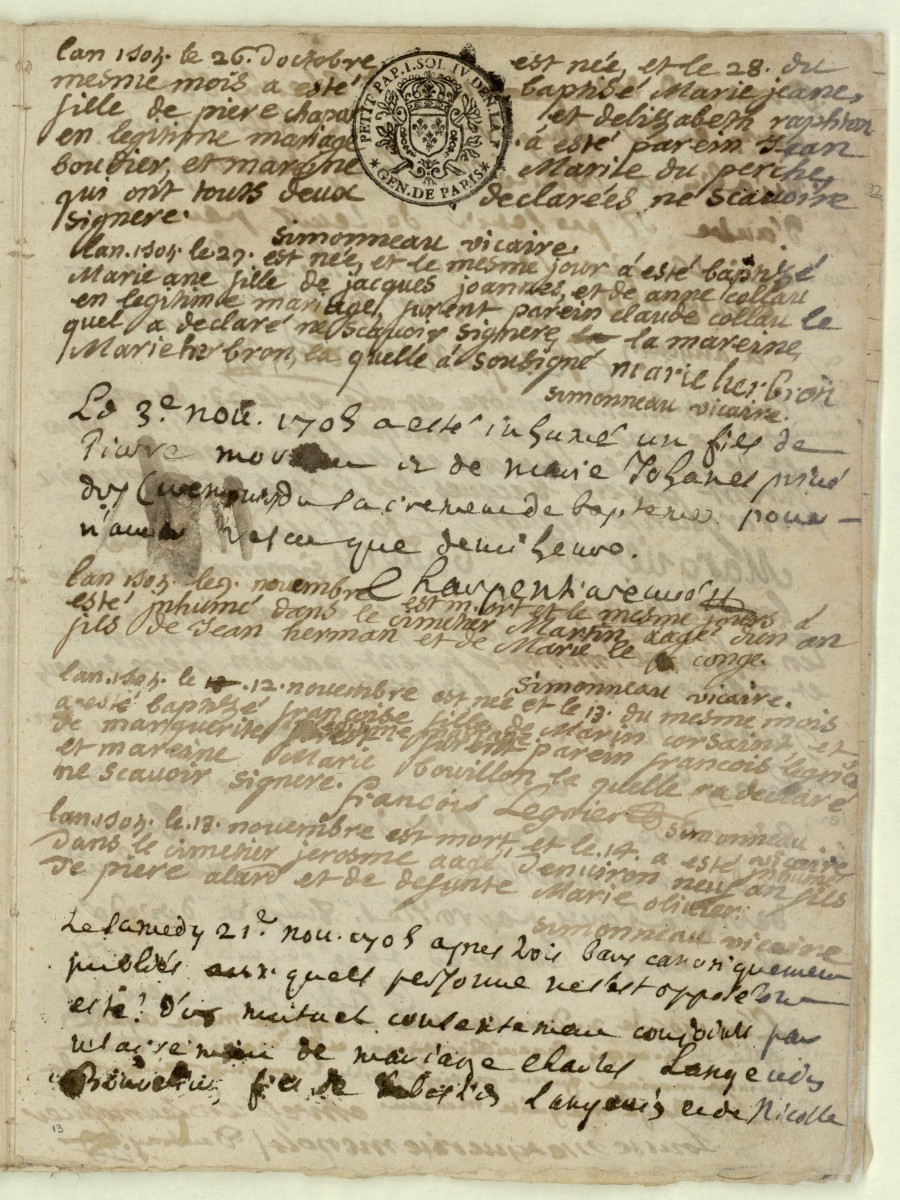 lan 1705. le 26. Doctobre est née, et le 28. du
mesme mois a esté baptisé Marie jeane,
fille de piere chapar et delizabeth raphison
en legitime mariage a esté parein Jean
boudier, et mareine Marie du perche,
qui ont touts deux declarées ne scauoire
signere.
PETIT PAP. I. SOL IV DEN. LA F
GEN. DE PARIS
simonneau vicaire.
lan. 1705. le 27. est née, et le mesme jour á esté baptisé
Marie ane fille de jacques joannes, et de anne collau
en legitime mariage, furent parein claude collau le
quel a declaré ne scauoir signere, la marene,
Marie herbron, la quelle á soubsigné marie herbron
simonneau vicaire.
Le 3e nou. 1705 a esté inhumé un fils de
Piarre et de marie Johanet privé
du sacrement de bapteme pour
n'auoir vescu que demi heure.
lan 1705. le 9. novembre est mort et le mesme jours á
esté inhumé dans le cimetier Martin aagé d'un an
fils de Jean herman et de Marie le conge.
simonneau vicaire.
lan. 1705. le 12. novembre est née et le 13. du mesme mois
a esté baptisé françoise fille de Marin corsaint et
de marguerite furent parein francois legrier
et marene Marie bouillon la quelle a declaré
ne scauoir signere.
François Legrier
simonneau vicaire
lan. 1705. le 13. novembre est mort, et le 14. a esté inhumé
Dans le cimetier jerosme aagé d'environ neuf an fils
de piere alard et de defunte Marie olivier.
simonneau vicaire
Le samedy 21e nou. 1705 apres trois bans canoniquement
publiés aux quels personne ne s'est opposé ont
esté d'un mutuel consentement conjoints par
le sacrement de mariage Charles Langevin
fils de Langevin et de Nicolle
13